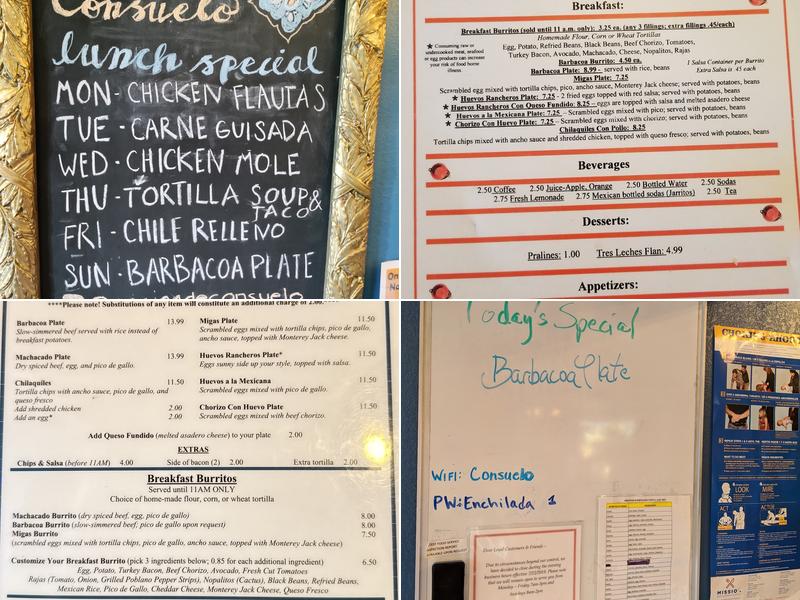 Consuelo
lunch special
MON - CHICKEN FLAUTAS
TUE - CARNE GUISADA
WED - CHICKEN MOLE
THU - TORTILLA SOUP &
TACO
FRI - CHILE RELLENO
SUN - BARBACOA PLATE
Breakfast:
Breakfast Burritos (sold until 11 a.m. only): 3.25 ea. (any 3 fillings; extra fillings .45/each)
Homemade Flour, Corn or Wheat Tortillas
Egg, Potato, Refried Beans, Black Beans, Beef Chorizo, Tomatoes,
Turkey Bacon, Avocado, Machacado, Cheese, Nopalitos, Rajas
★ Consuming raw or
undercooked meat, seafood
or egg products can increase
your risk of food borne
illness.
Barbacoa Burrito: 4.50 ea.
Barbacoa Plate: 8.99 - served with rice, beans
Migas Plate: 7.25
1 Salsa Container per Burrito
Extra Salsa is .45 each
Scrambled egg mixed with tortilla chips, pico, ancho sauce, Monterey Jack cheese; served with potatoes, beans
★ Huevos Rancheros Plate: 7.25 - 2 fried eggs topped with red salsa; served with potatoes, beans
★ Huevos Rancheros Con Queso Fundido: 8.25 – eggs are topped with salsa and melted asadero cheese
★ Huevos a la Mexicana Plate: 7.25 – Scrambled eggs mixed with pico; served with potatoes, beans
★ Chorizo Con Huevo Plate: 7.25 – Scrambled eggs mixed with chorizo; served with potatoes, beans
Chilaquiles Con Pollo: 8.25
Tortilla chips mixed with ancho sauce and shredded chicken, topped with queso fresco; served with potatoes, beans
Beverages
2.50 Coffee 2.50 Juice-Apple, Orange 2.50 Bottled Water 2.50 Sodas
2.75 Fresh Lemonade 2.75 Mexican bottled sodas (Jarritos) 2.50 Tea
Desserts:
Pralines: 1.00 Tres Leches Flan: 4.99
Appetizers:
****Please note! Substitutions of any item will constitute an additional charge of 2.00.****
Barbacoa Plate 13.99
Slow-simmered beef served with rice instead of
breakfast potatoes.
Machacado Plate 13.99
Dry spiced beef, egg, and pico de gallo.
Chilaquiles 11.50
Tortilla chips with ancho sauce, pico de gallo, and
queso fresco
Add shredded chicken 2.00
Add an egg* 2.00
Migas Plate 11.50
Scrambled eggs mixed with tortilla chips, pico de gallo,
ancho sauce, topped with Monterey Jack cheese.
Huevos Rancheros Plate* 11.50
Eggs sunny side up your style, topped with salsa.
Huevos a la Mexicana 11.50
Scrambled eggs mixed with pico de gallo.
Chorizo Con Huevo Plate 11.50
Scrambled eggs mixed with beef chorizo.
Add Queso Fundido (melted asadero cheese) to your plate 2.00
EXTRAS
Chips & Salsa (before 11AM) 4.00 Side of bacon (2) 2.00 Extra tortilla 2.00
Breakfast Burritos
Served until 11AM ONLY
Choice of home-made flour, corn, or wheat tortilla
Machacado Burrito (dry spiced beef, egg, pico de gallo) 8.00
Barbacoa Burrito (slow-simmered beef, pico de gallo upon request) 8.00
Migas Burrito 7.50
(scrambled eggs mixed with tortilla chips, pico de gallo, ancho sauce, topped with Monterey Jack cheese)
Customize Your Breakfast Burrito (pick 3 ingredients below; 0.85 for each additional ingredient) 6.50
Egg, Potato, Turkey Bacon, Beef Chorizo, Avocado, Fresh Cut Tomatoes
Rajas (Tomato, Onion, Grilled Poblano Pepper Strips), Nopalitos (Cactus), Black Beans, Refried Beans,
Mexican Rice, Pico de Gallo, Cheddar Cheese, Monterey Jack Cheese, Queso Fresco
Today's Special
Barbacoa Plate
WIFI: Consuelo
PW: Enchilada 1
Dear Loyal Customers & Friends –
LOOK
MIRE
ACT
ACTÚE